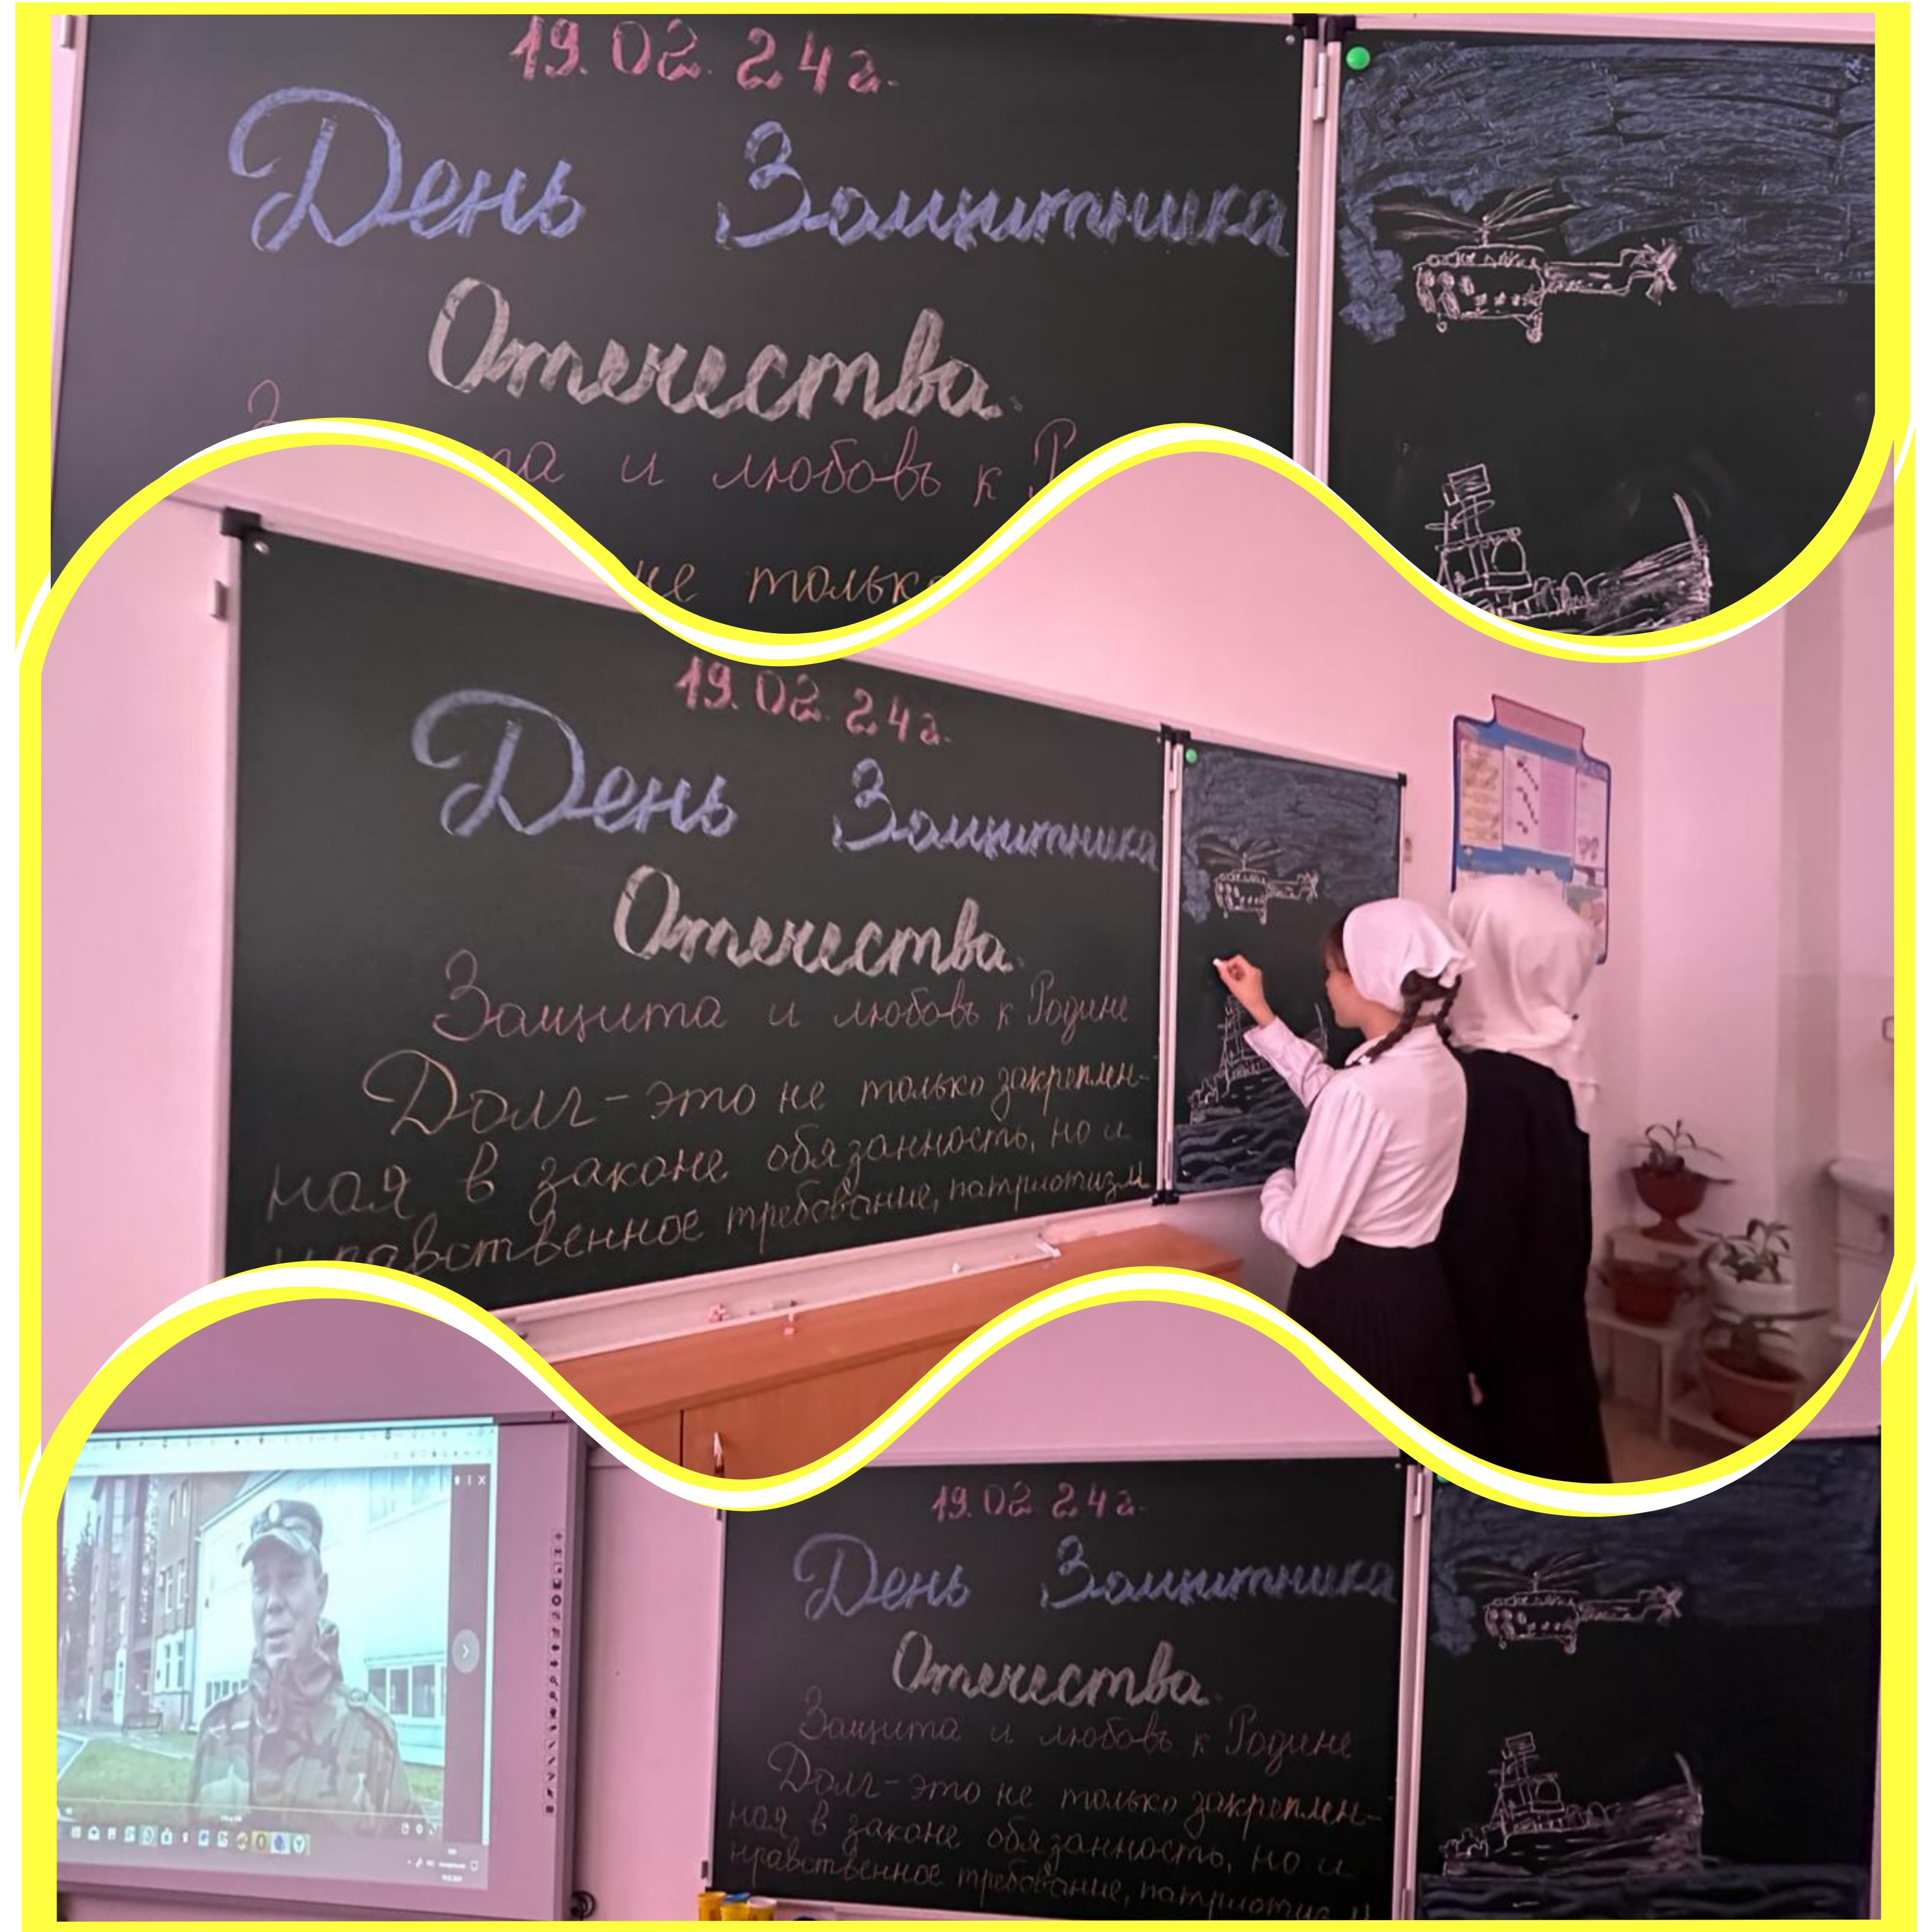 19.02.24г.
День Защитника
Отечества.
и любовь к
не только
19.02.24г.
День Защитника
Отечества.
Защита и любовь к Родине
Долг - это не только закреплен-
ная в законе обязанность, но и
нравственное требование, патриотизм
19.02 24г.
День Защитника
Отечества.
Защита и любовь к Родине
Долг - это не только закреплен-
ная в законе обязанность, но и
нравственное требование, патриотизм